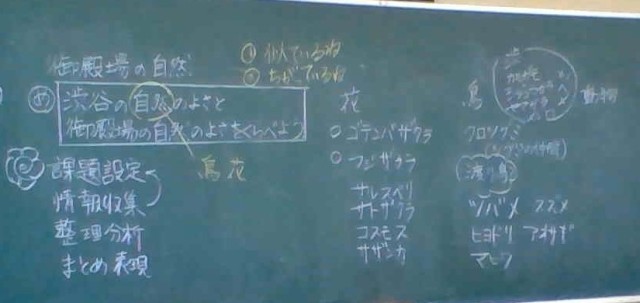 御殿場の自然
① 似ているね
② ちがっているね
め 渋谷の自然のよさと
御殿場の自然のよさをくらべよう
鳥 花
課題設定
情報収集
整理分析
まとめ 表現
花
○ ゴテンバザクラ
○ フジザクラ
サルスベリ
サトザクラ
コスモス
サザンカ
鳥
渋
動物
クロツグミ
渡り鳥
ツバメ スズメ
ヒヨドリ アオサギ